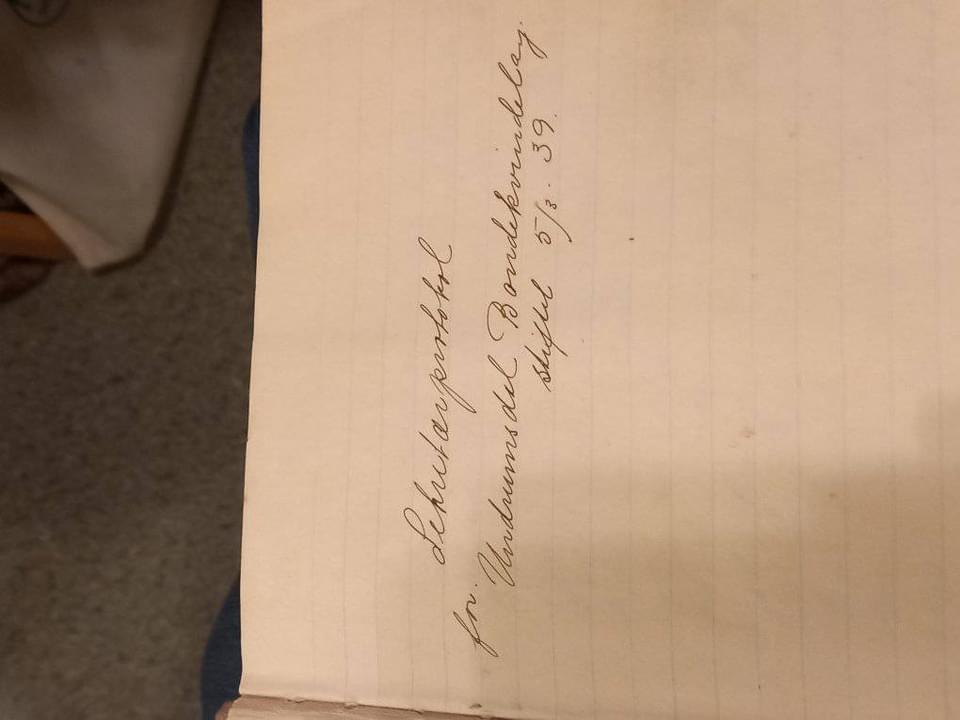 Sekretærprotokol
for. Undrumsdal Bondekvindelag.
stiftet 5/3. 39.